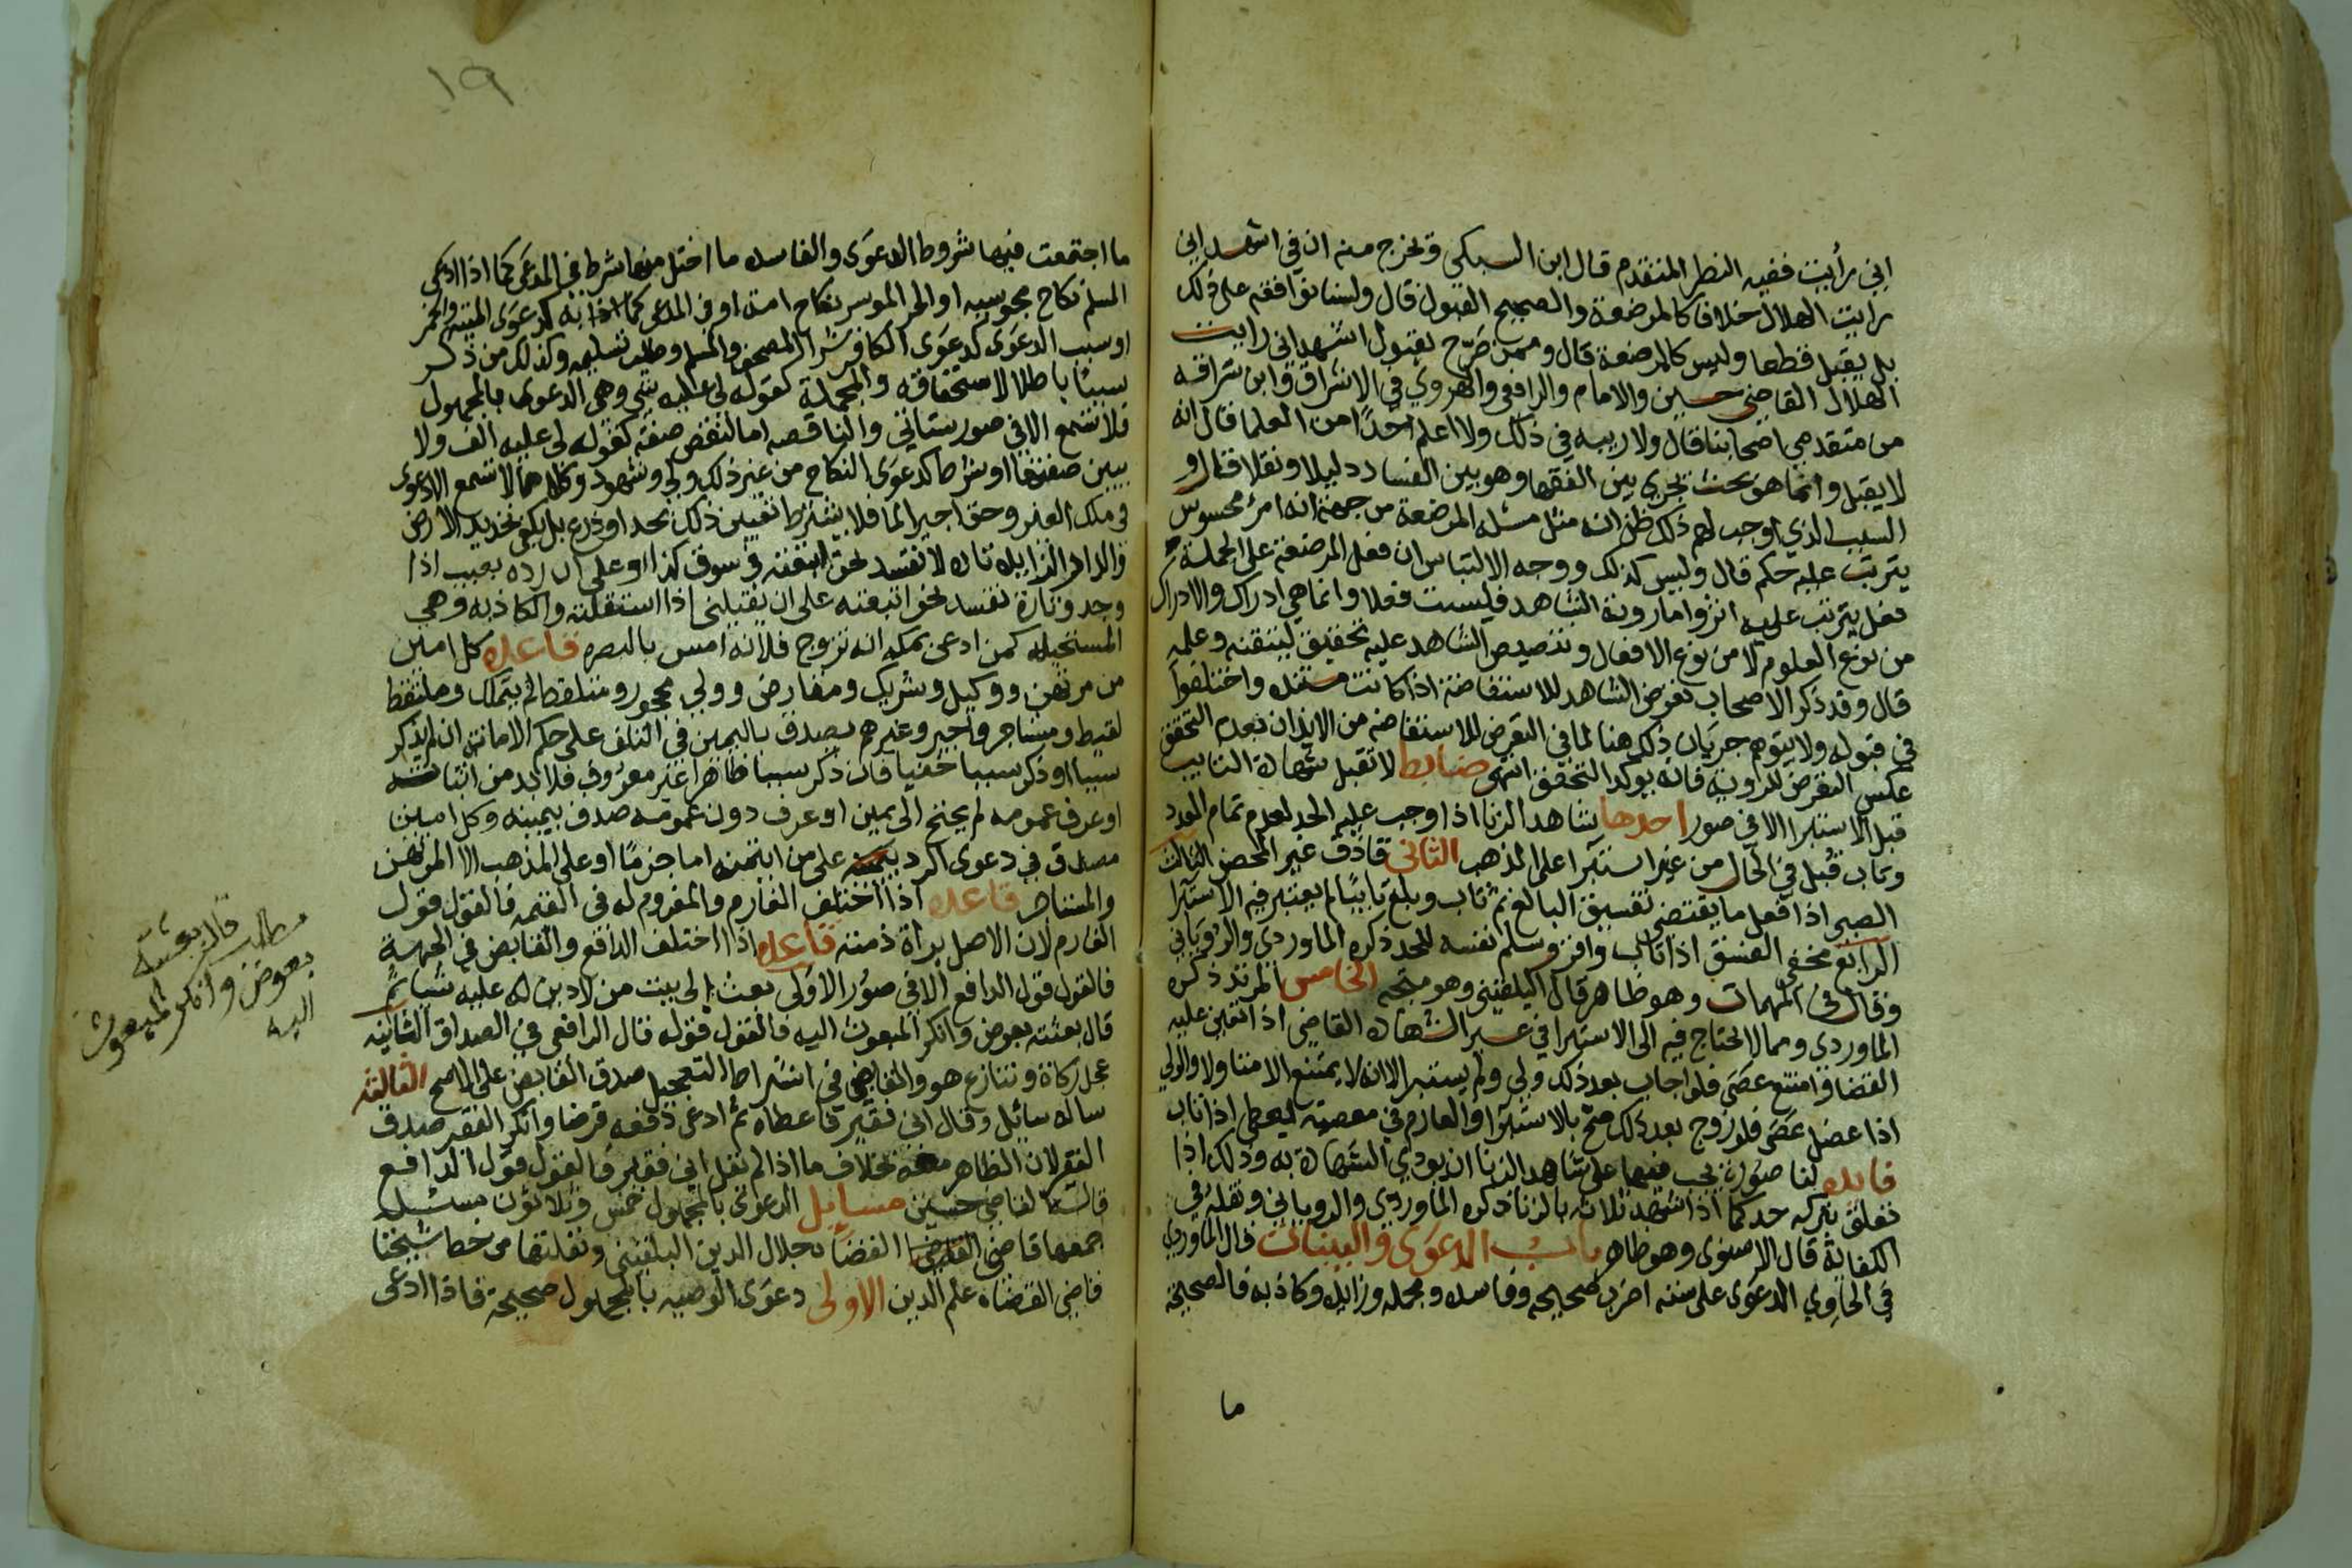 اني رأيت ففيه النظر المتقدم قال ابن السبكي وتخرج منه ان في اشهد اني
رايت الهلال خلافا كالمرضعة والصحيح القبول قال ولسنا نوافقه على ذلك
بل يقبل قطعا وليس كالمرضعة قال وممن صرح بقبول اشهد اني رايت
الهلال القاضي حسين والامام والرافعي والهروي في الاشراف وابن سراقه
من متقدمي اصحابنا قال ولا ريبه في ذلك ولا اعلم احدا من العلما قال انه
لا يقبل وانما هو بحث يجري بين الفقها وهو بين الفساد دليلا ونقلا قال و
السبب الذي اوجب لهم ذلك ظن انه مثل مسئله المرضعة من جهة انه امر محسوس
يترتب عليه حكم قال وليس كذلك ووجه الالتباس ان فعل المرضعة على الجملة
فعل يترتب عليه اثر واما روية الشاهد فليست فعلا وانما هي ادراك والادراك
من نوع العلوم لا من نوع الافعال وتنصيص الشاهد عليه تحقيق ليتقنه وعلمه
قال وقد ذكر الاصحاب تعرض الشاهد للاستفاضة اذا كانت مستنده واختلفوا
في قبوله ولا يتوهم جريان ذلك هنا لما في التعرض للاستفاضه من الايذان بعدم التحقق
عكس التعرض للروية فانه يوكد التحقق انتهى ضابط لا تقبل شهادة التايب
قبل الاستبرا الا في صور احدها شاهد الزنا اذا وجب عليه الحد لعدم تمام العدد
وتاب قبل في الحال من غير استبرا على المذهب الثاني قاذف غير المحصن الثالث
الصبي اذا فعل ما يقتضي تفسيق البالغ ثم تاب وبلغ تايبا لم يعتبر فيه الاستبرا
الرابع مخفي الفسق اذا تاب واقر وسلم نفسه للحد ذكره الماوردي والروياني
وقال في المهمات وهو ظاهر قال البلقيني وهو متجه الخامس المرتد ذكره
الماوردي ومما لا يحتاج فيه الى الاستبرا في غير الشهادة القاضي اذا تعين عليه
القضا وامتنع عصى فلو اجاب بعد ذلك ولي ولم يستبر لانه لا يمتنع الا متاولا والولي
اذا عضل عصى فلو زوج بعد ذلك صح بلا استبرا والغارم في معصية يعطى اذا تاب
فايده لنا صورة يجب فيها على شاهد الزنا ان يودي الشهادة به وذلك اذا
تعلق بتركه حد كما اذا شهد ثلاثة بالزنا ذكره الماوردي والروياني ونقله في
الكفاية قال الاسنوي وهو ظاهر باب الدعوى والبينات قال الماوردي
في الحاوي الدعوى على ستة اضرب صحيحه وفاسده ومجمله وزايده وكاذبه فالصحيحة
ما
١٩
ما اجتمعت فيها شروط الدعوى والفاسده ما اختل منها شرط في المدعي كما اذا ادعى
المسلم نكاح مجوسيه او الحر الموسر نكاح امة او في المدعى به كدعوى الميتة والخمر
او سبب الدعوى كدعوى الكافر شرا المصحف والمسلم وطلب تسليمه وكذلك من ذكر
سببا باطلا لاستحقاقه والمجملة كقوله لي عليه شي وهي الدعوى بالمجهول
فلا تسمع الا في صور ستاتي والناقصه اما لنقص صفة كقوله لي عليه الف ولا
يبين صفتها او شرط كدعوى النكاح من غير ذكر ولي وشهود وكلاهما لا تسمع الا دعوى
في ملك الغير وحق اجير الما فلا يشترط تعيين ذلك بحد او ذرع بل يكفي تحديد الارض
والزايده تارة لا تفسد نحو ابتعته في سوق كذا او على ان رده بعيب اذا
وجد وتارة تفسد نحو ابتعته على ان يقيلني اذا استقلته والكاذبه وهي
المستحيله كمن ادعى بمكه انه تزوج فلانه امس بالبصره قاعده كل امين
من مرتهن ووكيل وشريك ومقارض وولي محجور وملتقط لم يتملك وملتقط
لقيط ومستاجر واجير وغيرهم يصدق باليمين في التلف على حكم الامانة ان لم يذكر
سببا او ذكر سببا خفيا فان ذكر سببا ظاهرا غير معروف فلا بد من اثباته
او عرف عمومه لم يحتج الى يمين او عرف دون عمومه صدق بيمينه وكل امين
مصدق في دعوى الرد على من ايتمنه اما جزما او على المذهب الا المرتهن
والمستاجر قاعده اذا اختلف الغارم والمغروم له في القيمه فالقول قول
الغارم لان الاصل براة ذمته قاعده اذا اختلف الدافع والقابض في الجهة
فالقول قول الدافع الا في صور الاولى بعث الى بيت من لا دين له عليه شيا ثم
قال بعثته بعوض وانكر المبعوث اليه فالقول قوله قال الرافعي في الصداق الثانيه
عجل زكاة وتنازع هو والقابض في اشتراط التعجيل صدق القابض على الاصح الثالثه
ساله سائل وقال اني فقير فاعطاه ثم ادعى دفعه قرضا وانكر الفقير صدق
الفقير لان الظاهر معه بخلاف ما اذا لم يقل اني فقير فالقول قول الدافع
قاله القاضي حسين مسايل الدعوى بالمجهول خمس وثلاثون مسئلة
جمعها قاضي القضاة جلال الدين البلقيني ونقلتها من خط شيخنا
قاضي القضاة علم الدين الاولى دعوى الوصيه بالمجهول صحيحة فاذا ادعى
مطلب قال بعثته
بعوض وانكر المبعوث
اليه